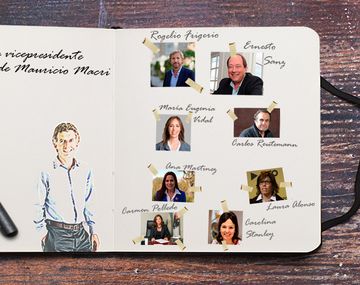 vicepresidente
de Mauricio Macri
Rogelio Frigerio
Ernesto
Sanz
María Eugenia
Vidal
Carlos Reutemann
Ana Martinez
Laura Alonso
Carmen Polledo
Carolina
Stanley